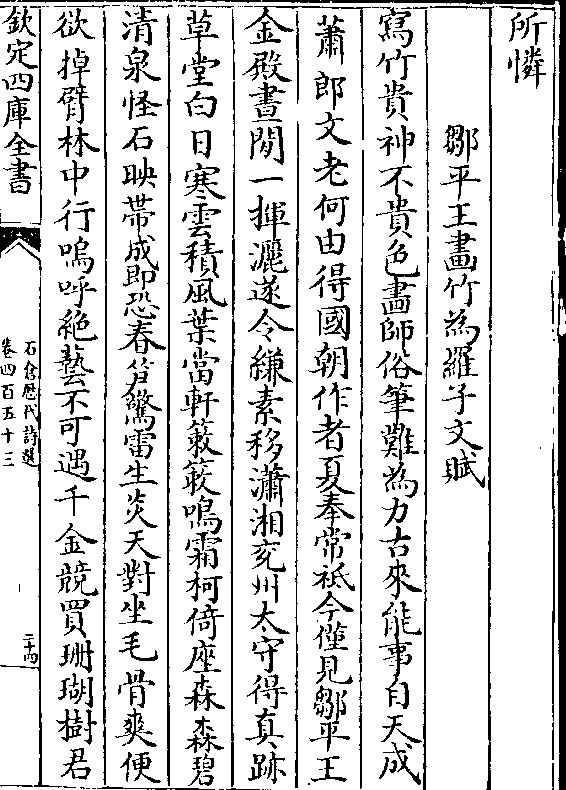 所憐
鄒平王畫竹為羅子文賦
寫竹貴神不貴色畵師俗筆難為力古來能事自天成
蕭郎文老何由得國朝作者夏奉常祗今僅見鄒平王
金殿晝閒一揮灑遂令縑素移瀟湘兖州太守得真跡
草堂白日寒雲積風葉當軒簌簌鳴霜柯倚座森森碧
清泉怪石映帶成即恐春笋驚雷生炎天對坐毛骨爽便
欲掉臂林中行嗚呼絶藝不可遇千金競買珊瑚樹君
欽定四庫全書
石倉歷代詩選
卷四百五十三
二十四